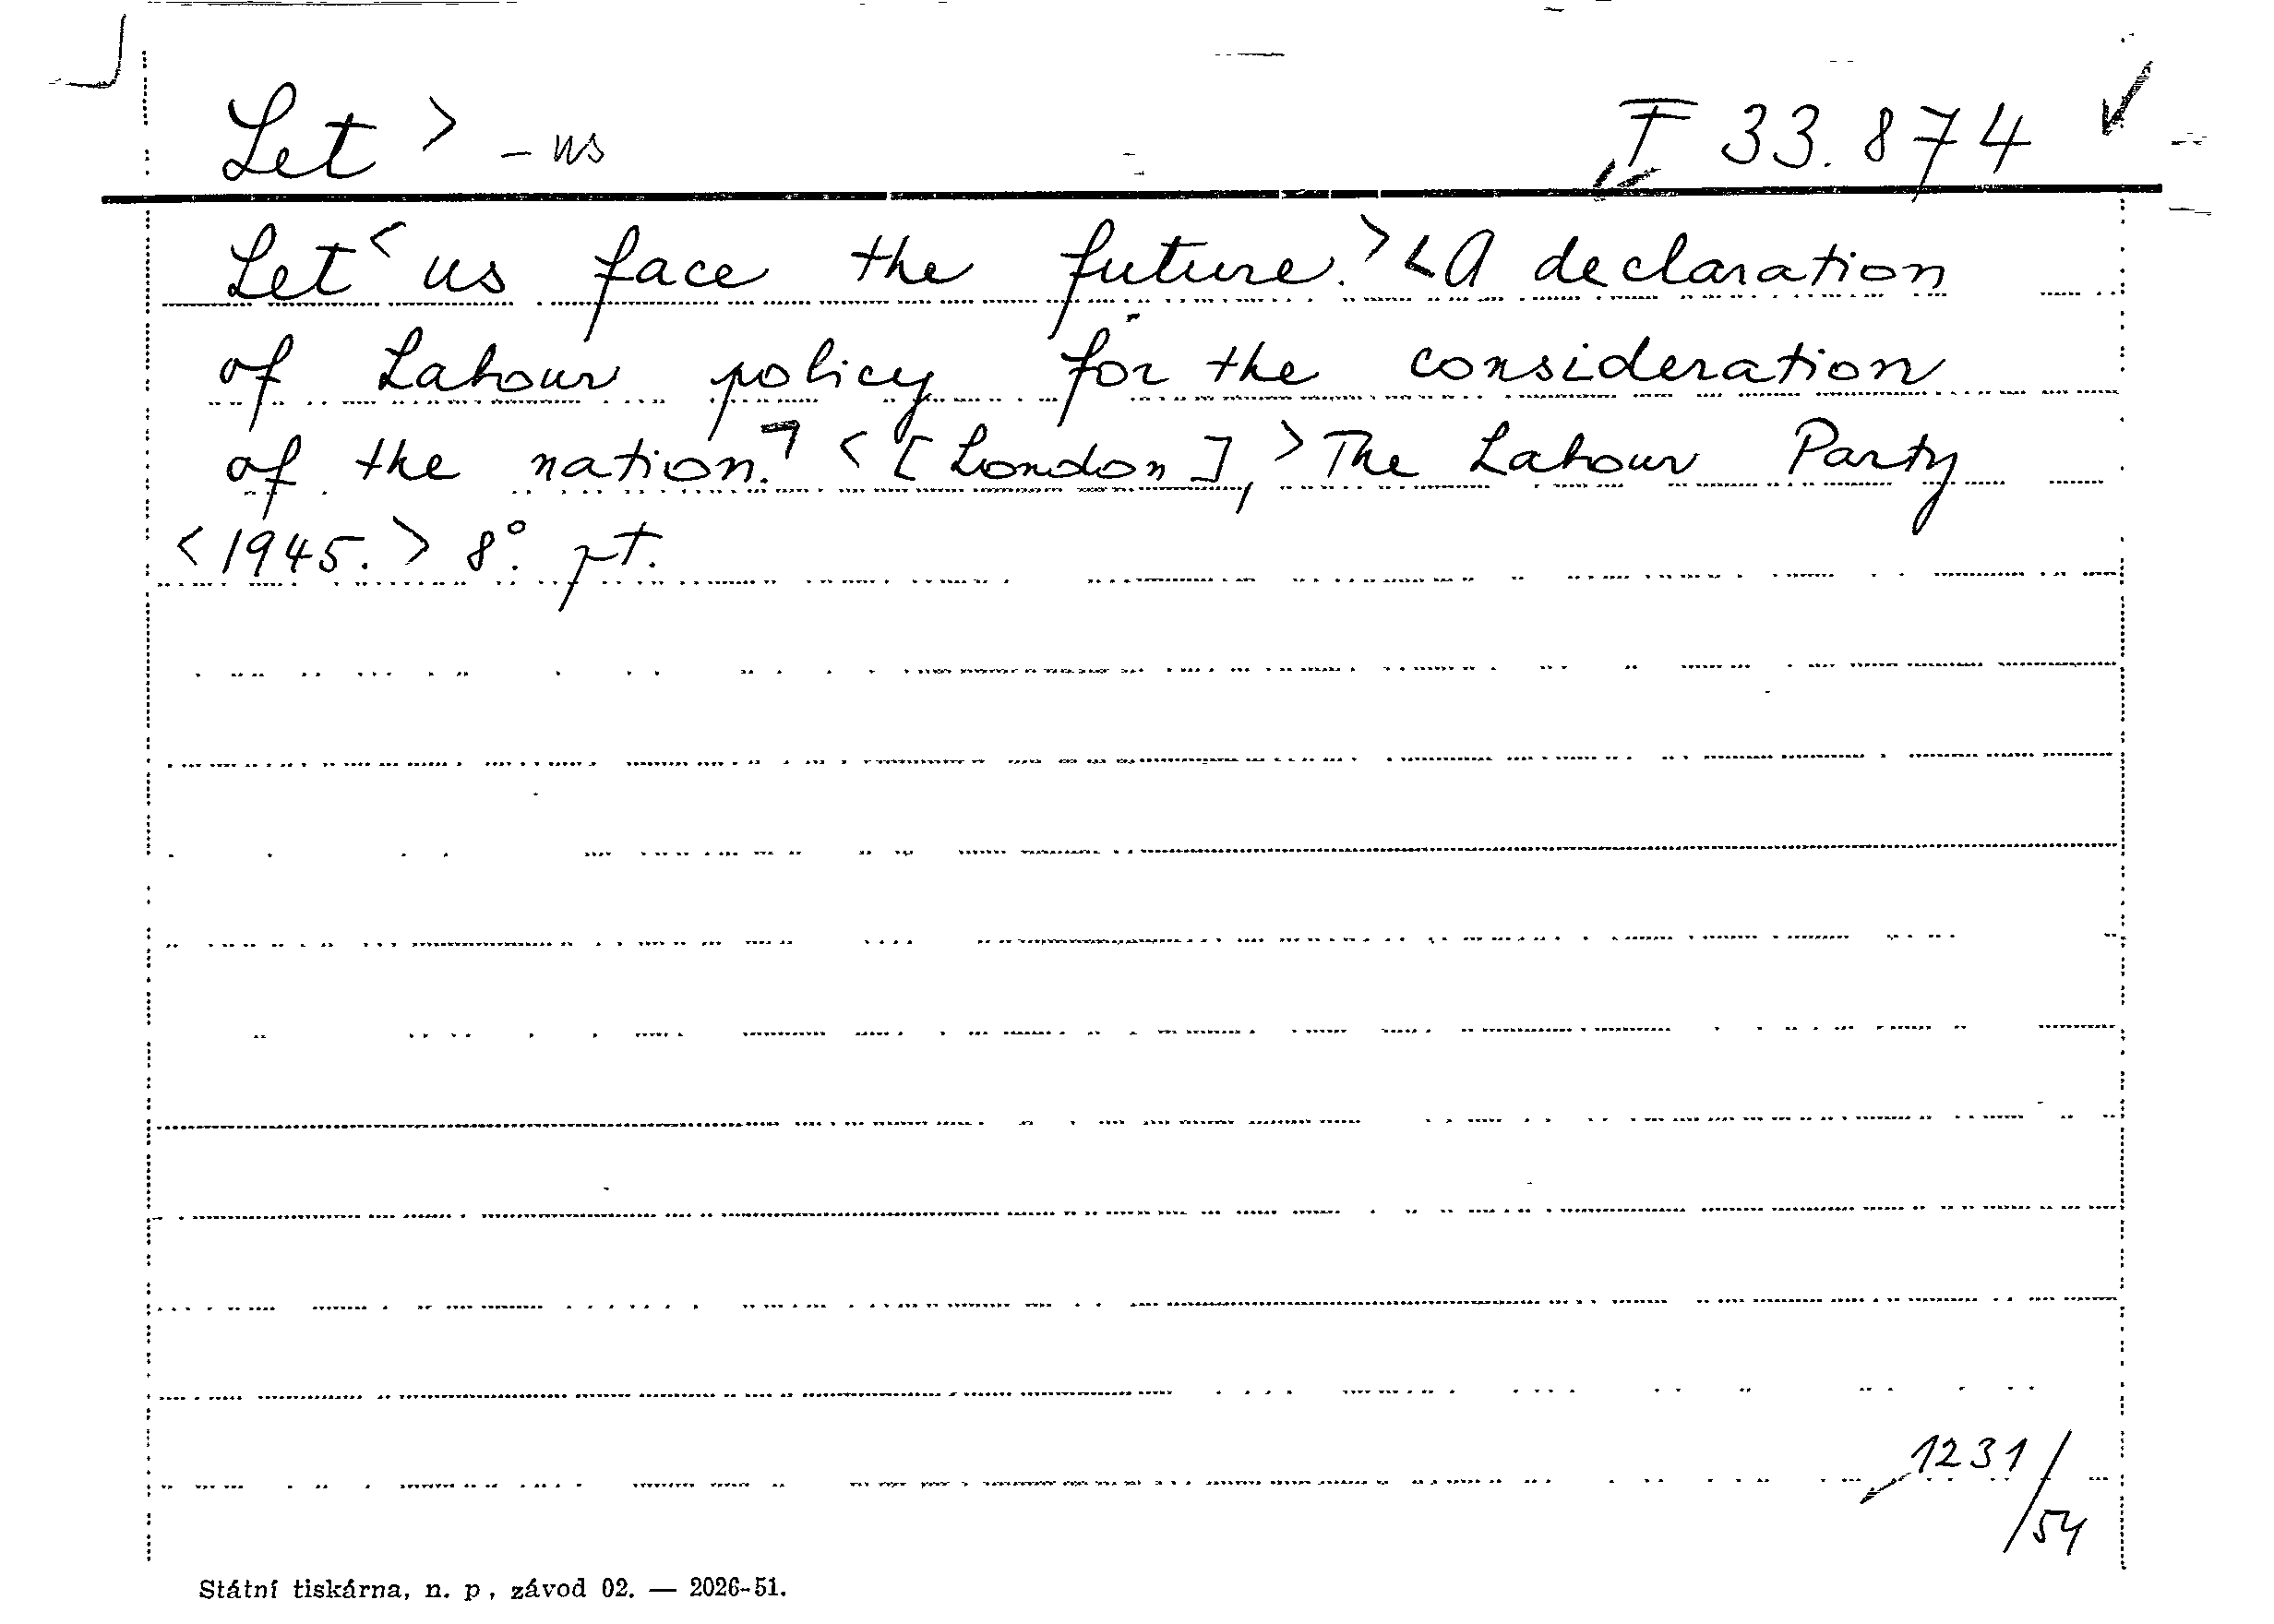 Let > - us F 33.874
Let < us face the future. > < A declaration
of Labour policy for the consideration
of the nation. > < [London], > The Labour Party
< 1945. > 8°. pt.
1231/
54
Státní tiskárna, n. p., závod 02. — 2026-51.